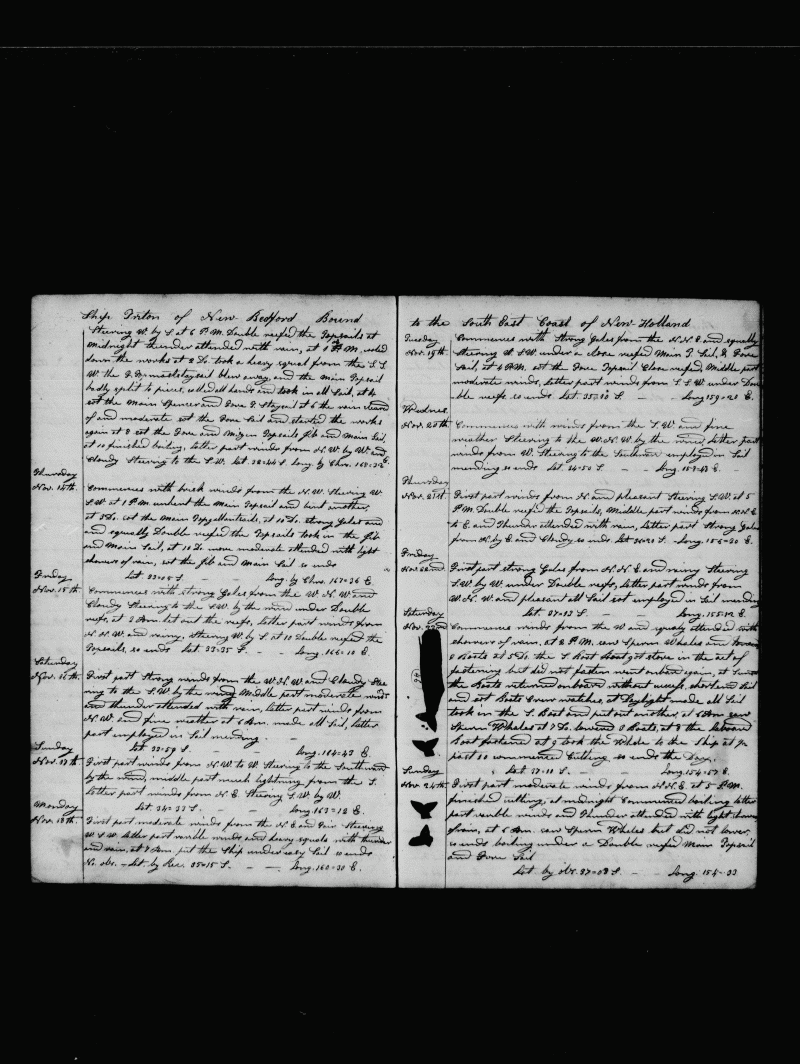 Ship Triton of New Bedford Bound
Steering W. by S. at 6 P.M. Double reefed the Topsails at
midnight thunder attended with rain, at 1 P.M.
down the works at 2 Do. took a heavy squal from the S.S.
W. the blew away, and the Main Topsail
badly split to pieces, called all hands and took in all Sail, at 4
set the Main Spencer and Fore T. Staysail at 6 the rain
of and moderate set the Fore Sail and started the works
again at 8 set the Fore and Mizen Topsails Jib and Main Sail,
at 10 finished boiling, latter part winds from N.W. by W. and
Cloudy Steering to the S.W. Lat. 32=44 S. Long. by Chro. 168=
Thursday
Nov. 14th. Commences with brisk winds from the N.W. Steering W.
S.W. at 1 P.M. unbent the Main Topsail and bent another,
at 3 Do. set the Main Topgallantsails, at 10 Do. strong Gales and
and squally Double reefed the Topsails took in the Jib
and Main Sail, at 10 Do. more moderate attended with light
showers of rain, set the Jib and Main Sail so ends
Lat. 33=05 S. - - Long. by Chro. 167=36 E.
Friday
Nov. 15th. Commences with strong Gales from the W.N.W. and
Cloudy Steering to the S.W. by the wind under Double
reefs, at 2 Am. let out the reefs, latter part winds from
N.N.W. and rainy, Steering W. by S. at 10 Double reefed the
Topsails, so ends Lat. 33=35 S. - - Long. 166=10 E.
Saturday
Nov. 16th. First part Strong winds from the W.N.W. and Cloudy Stee
ring to the S.W. by the wind, Middle part moderate winds
and thunder attended with rain, latter part winds from
N.W. and fine weather at 6 Am. made all Sail, latter
part employed in Sail mending. -
Lat. 33=59 S. - - Long. 164=43 E.
Sunday
Nov. 17th. First part winds from N.W. to W. Steering to the Southward
by the wind, middle part much lightning from the S.
latter part winds from N.E. Steering S.W. by W.
Lat. 34=37 S. - - Long. 163=12 E.
Monday
Nov. 18th. First part moderate winds from the N.E. and Fair Steering
W.S.W. latter part varible winds and heavy squals with thunder
and rain, at 7 Am. put the Ship under easy Sail so ends
No obs. - Lat. by Rec. 35=15 S. - - Long. 160=30 E.
to the South East Coast of New Holland
Tuesday
Nov. 19th. Commences with Strong Gales from the N.N.E. and squally
Steering W.S.W. under a close reefed Main T. Sail, & Fore
Sail, at 4 P.M. set the Fore Topsail Close reefed, Middle part
moderate winds, latter part winds from S.S.W. under Dou
ble reefs so ends Lat. 35= S. - Long. 159=20 E.
Wednes.
Nov. 20th. Commences with winds from the S.W. and fine
weather Steering to the W.N.W. by the wind, latter part
winds from W. Steering to the Southward employed in Sail
mending so ends Lat. 34=50 S. - - Long. 157=43 E.
Thursday
Nov. 21st. First part winds from N. and pleasant Steering S.W. at 5
P.M. Double reefed the Topsails, Middle part winds from N.N.E.
to E. and Thunder attended with rain, latter part Strong Gales
from N. by E. and Cloudy so ends Lat. 36=20 S. Long. 156=30 E.
Friday
Nov. 22nd. First part strong Gales from N.N.E. and rainy Steering
S.W. by W. under Double reefs, latter part winds from
W.N.W. and pleasant all Sail set employed in Sail mending
Lat. 37=13 S. - - Long. 155=12 E.
Saturday
Nov. 23rd. Commences winds from the W. and squaly attended with
showers of rain, at 2 P.M. saw Sperm Whales and lowered
3 Boats at 5 Do. the S. Boat got stove in the act of
fastening but did not fasten went onboard again, at Sunset
the Boats returned onboard without success, shortend Sail
and set Boats Crew watches, at Daylight made all Sail
took in the S. Boat and put out another, at 6 Am. saw
Sperm Whales at 7 Do. lowered 3 Boats, at 8 the larboard
Boat fastened at 9 took the Whale to the Ship at ½
past 10 commenced Cutting, so ends the Day.
Lat. 37=11 S. - - Long. 154=57 E.
Sunday
Nov. 24th. First part moderate winds from N.N.E. at 5 P.M.
finished cutting, at midnight Commenced boiling latter
part varible winds and Thunder attended with light showers
of rain, at 6 Am. saw Sperm Whales but did not lower,
so ends boiling under a Double reefed Main Topsail
and Fore Sail
Lat. by obs. 37=08 S. - - Long. 154=33